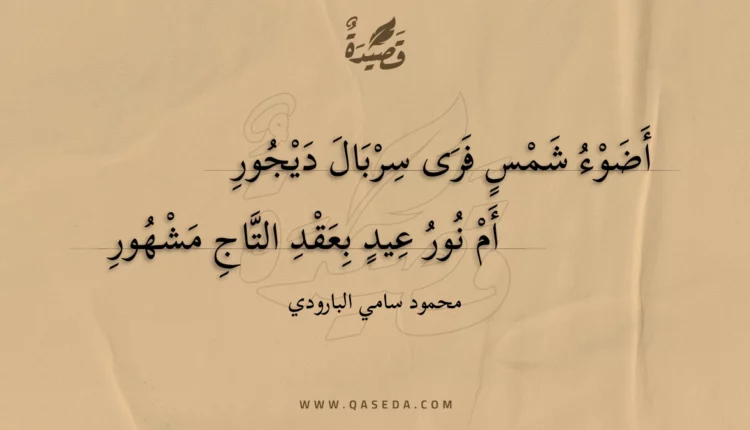 قَصِيْدَةٌ
أَضَوْءُ شَمْسٍ فَرَى سِرْبَالَ دَيْجُورِ
أَمْ نُورُ عِيدٍ بِعَقْدِ التَّاجِ مَشْهُورِ
محمود سامي البارودي
WWW.QASEDA.COM